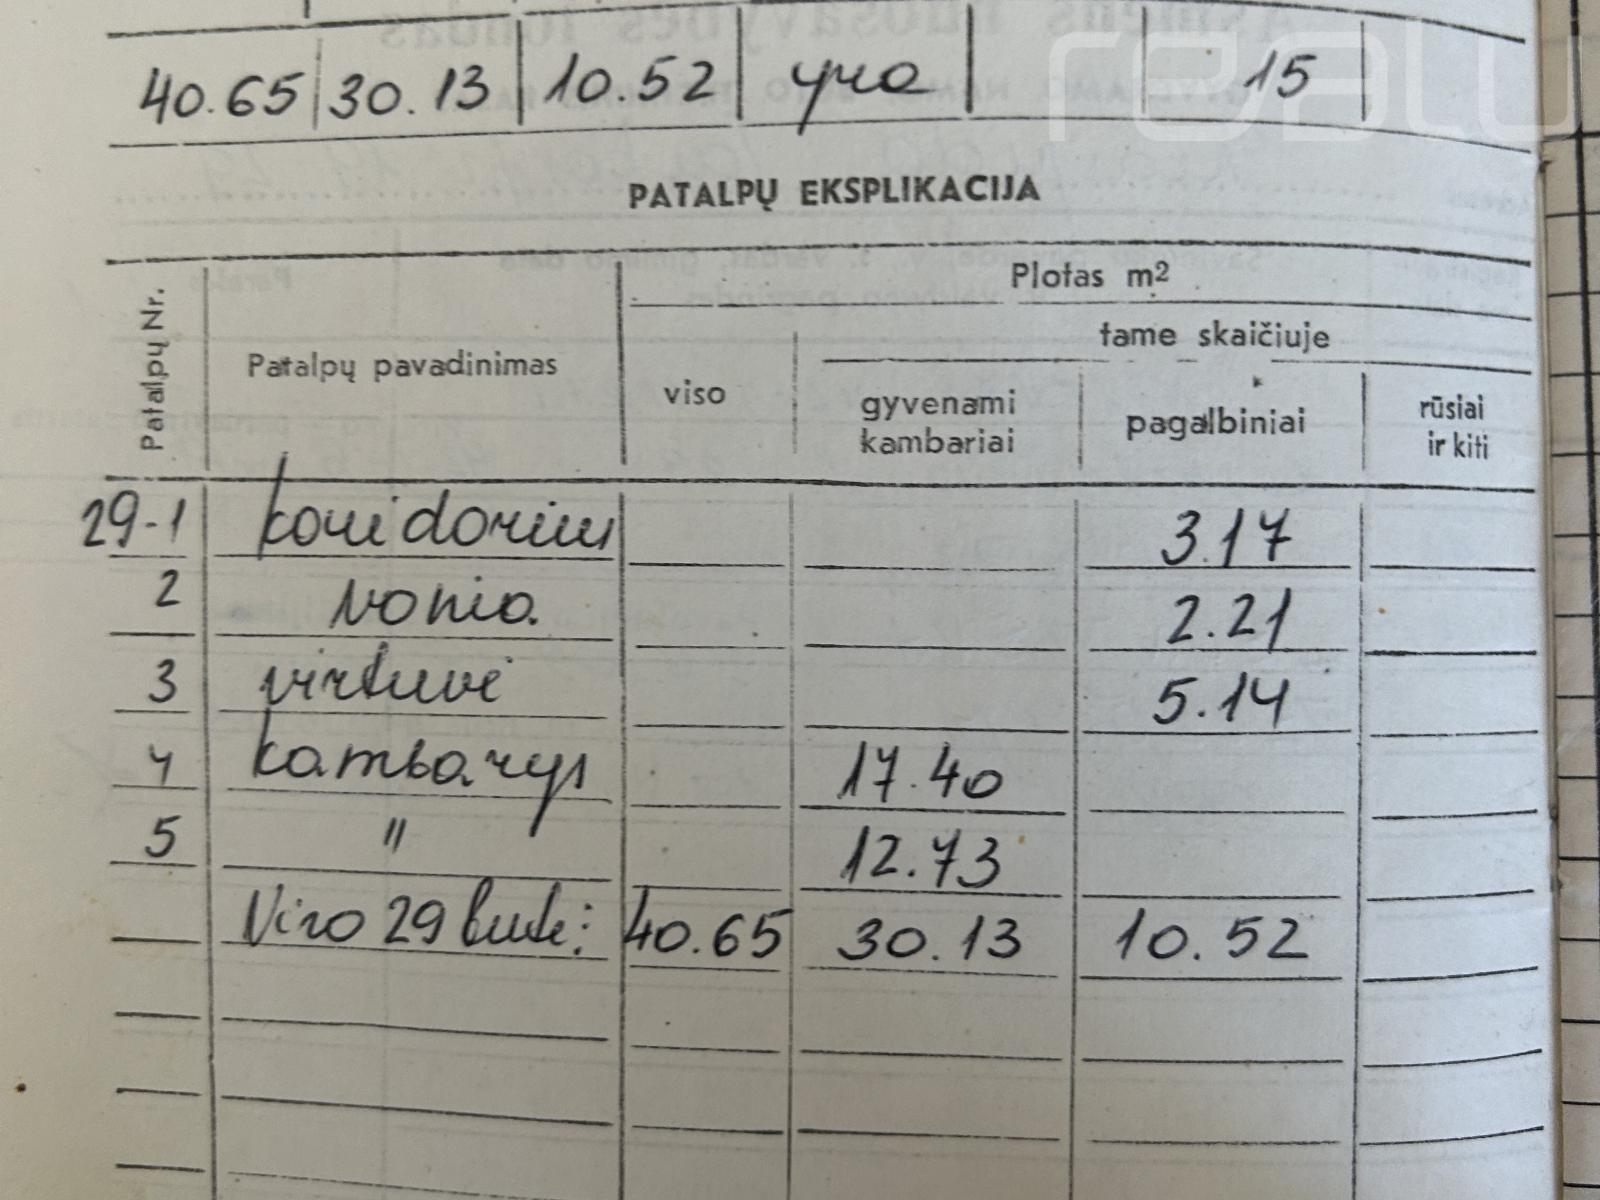 40.65 30.13 10.52 yra 15
realu
PATALPŲ EKSPLIKACIJA
Patalpų Nr.
Patalpų pavadinimas
Plotas m2
viso
tame skaičiuje
gyvenami
kambariai
pagalbiniai
rūsiai
ir kiti
29-1 koridorius 3.17
2 vonia 2.21
3 virtuvė 5.14
4 kambarys 17.40
5 " 12.73
Viso 29 bute: 40.65 30.13 10.52